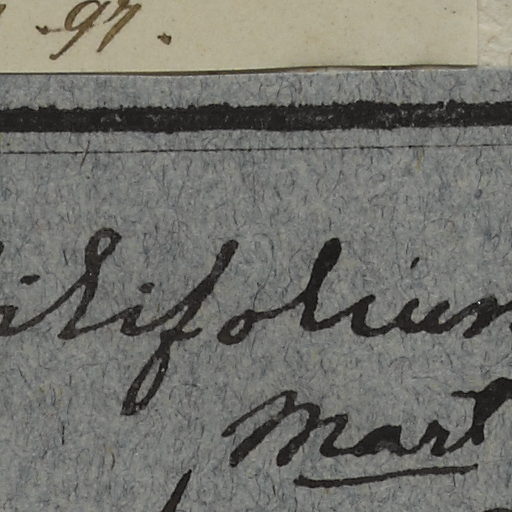 . 97.
ilifolium
Mart